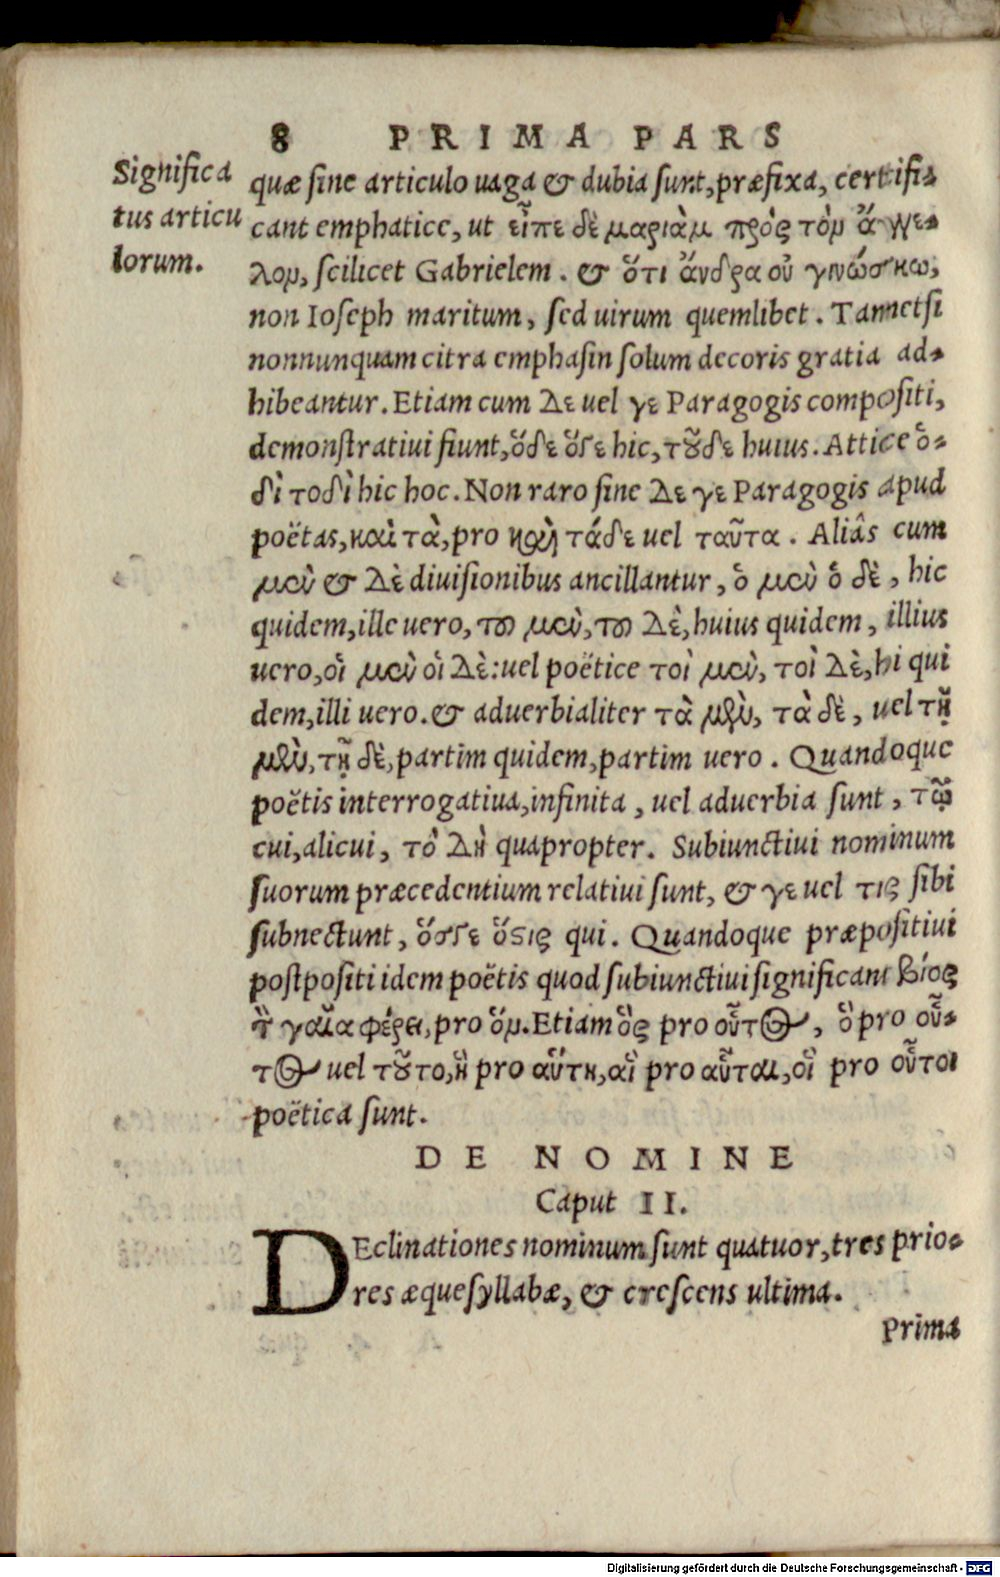 8 PRIMA PARS
Significa
tus articu
lorum.
quæ sine articulo uaga & dubia sunt, præfixa, certifi-
cant emphatice, ut εἶπε δὲ μαριὰμ πρὸς τὸν ἄγγε-
λον, scilicet Gabrielem. & ὅτι ἄνδρα οὐ γινώσκω,
non Ioseph maritum, sed uirum quemlibet. Tametsi
nonnunquam citra emphasin solum decoris gratia ad-
hibeantur. Etiam cum Δε uel γε Paragogis compositi,
demonstratiui fiunt, ὅδε ὅγε hic, τοῦδε huius. Attice ὁ-
δὶ τοδὶ hic hoc. Non raro sine Δε γε Paragogis apud
poëtas, καὶ τὰ, pro καὶ τάδε uel ταῦτα. Aliâs cum
μεὺ & Δὲ diuisionibus ancillantur, ὁ μεὺ ὁ δὲ, hic
quidem, ille uero, τοῦ μεὺ, τοῦ Δὲ, huius quidem, illius
uero, οἱ μεὺ οἱ Δὲ: uel poëtice τοὶ μεὺ, τοὶ Δὲ, hi qui
dem, illi uero. & aduerbialiter τὰ μὲν, τὰ δὲ, uel τῇ
μὲν, τῇ δὲ, partim quidem, partim uero. Quandoque
poëtis interrogatiua, infinita, uel aduerbia sunt, τῷ
cui, alicui, τὸ Δὴ quapropter. Subiunctiui nominum
suorum præcedentium relatiui sunt, & γε uel τις sibi
subnectunt, ὅσγε ὅστις qui. Quandoque præpositiui
postpositi idem poëtis quod subiunctiui significant βίος
τ γαῖα φέρει, pro ὅν. Etiam ὃς pro οὗτος, ὃ pro οὗ-
τος uel τοῦτο, ἣ pro αὕτη, αἳ pro αὗται, οἳ pro οὗτοι
poëtica sunt.
DE NOMINE
Caput II.
DEclinationes nominum sunt quatuor, tres prio-
res æquesyllabæ, & crescens ultima.
Prima
Digitalisierung gefördert durch die Deutsche Forschungsgemeinschaft - DFG